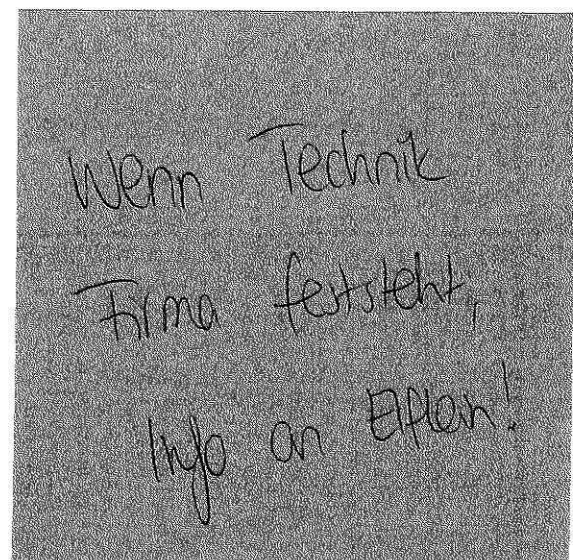 Wenn Technik
Firma feststeht,
Info an Elflein!